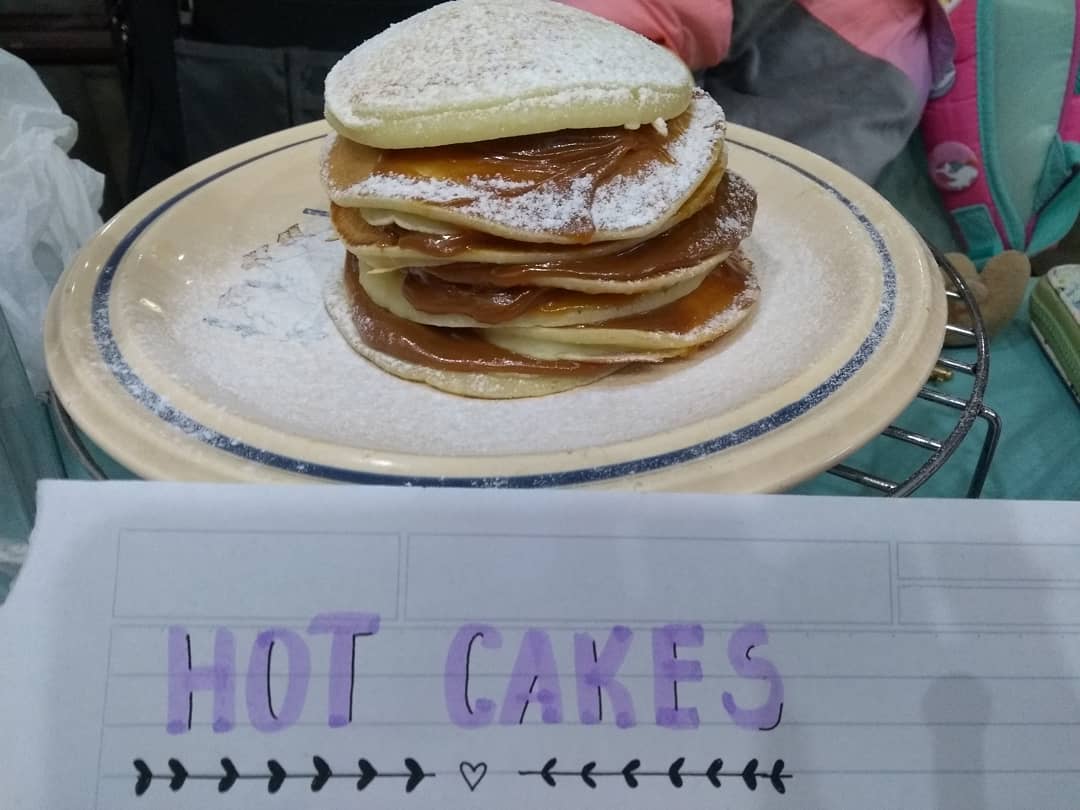 HOT CAKES